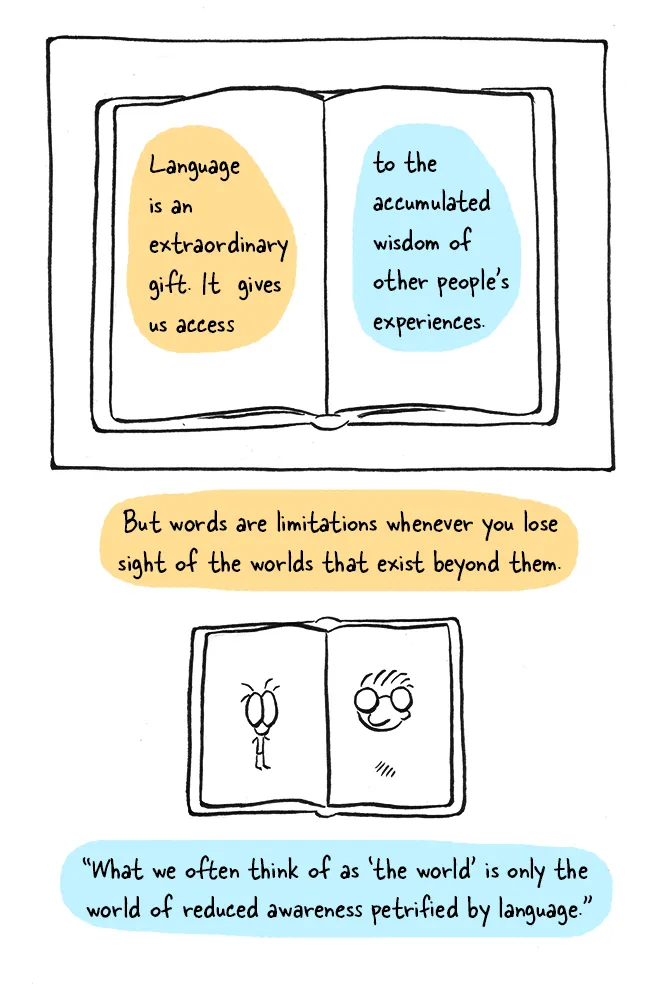 Language
is an
extraordinary
gift. It gives
us access
to the
accumulated
wisdom of
other people's
experiences.
But words are limitations whenever you lose
sight of the worlds that exist beyond them.
“What we often think of as ‘the world’ is only the
world of reduced awareness petrified by language.”